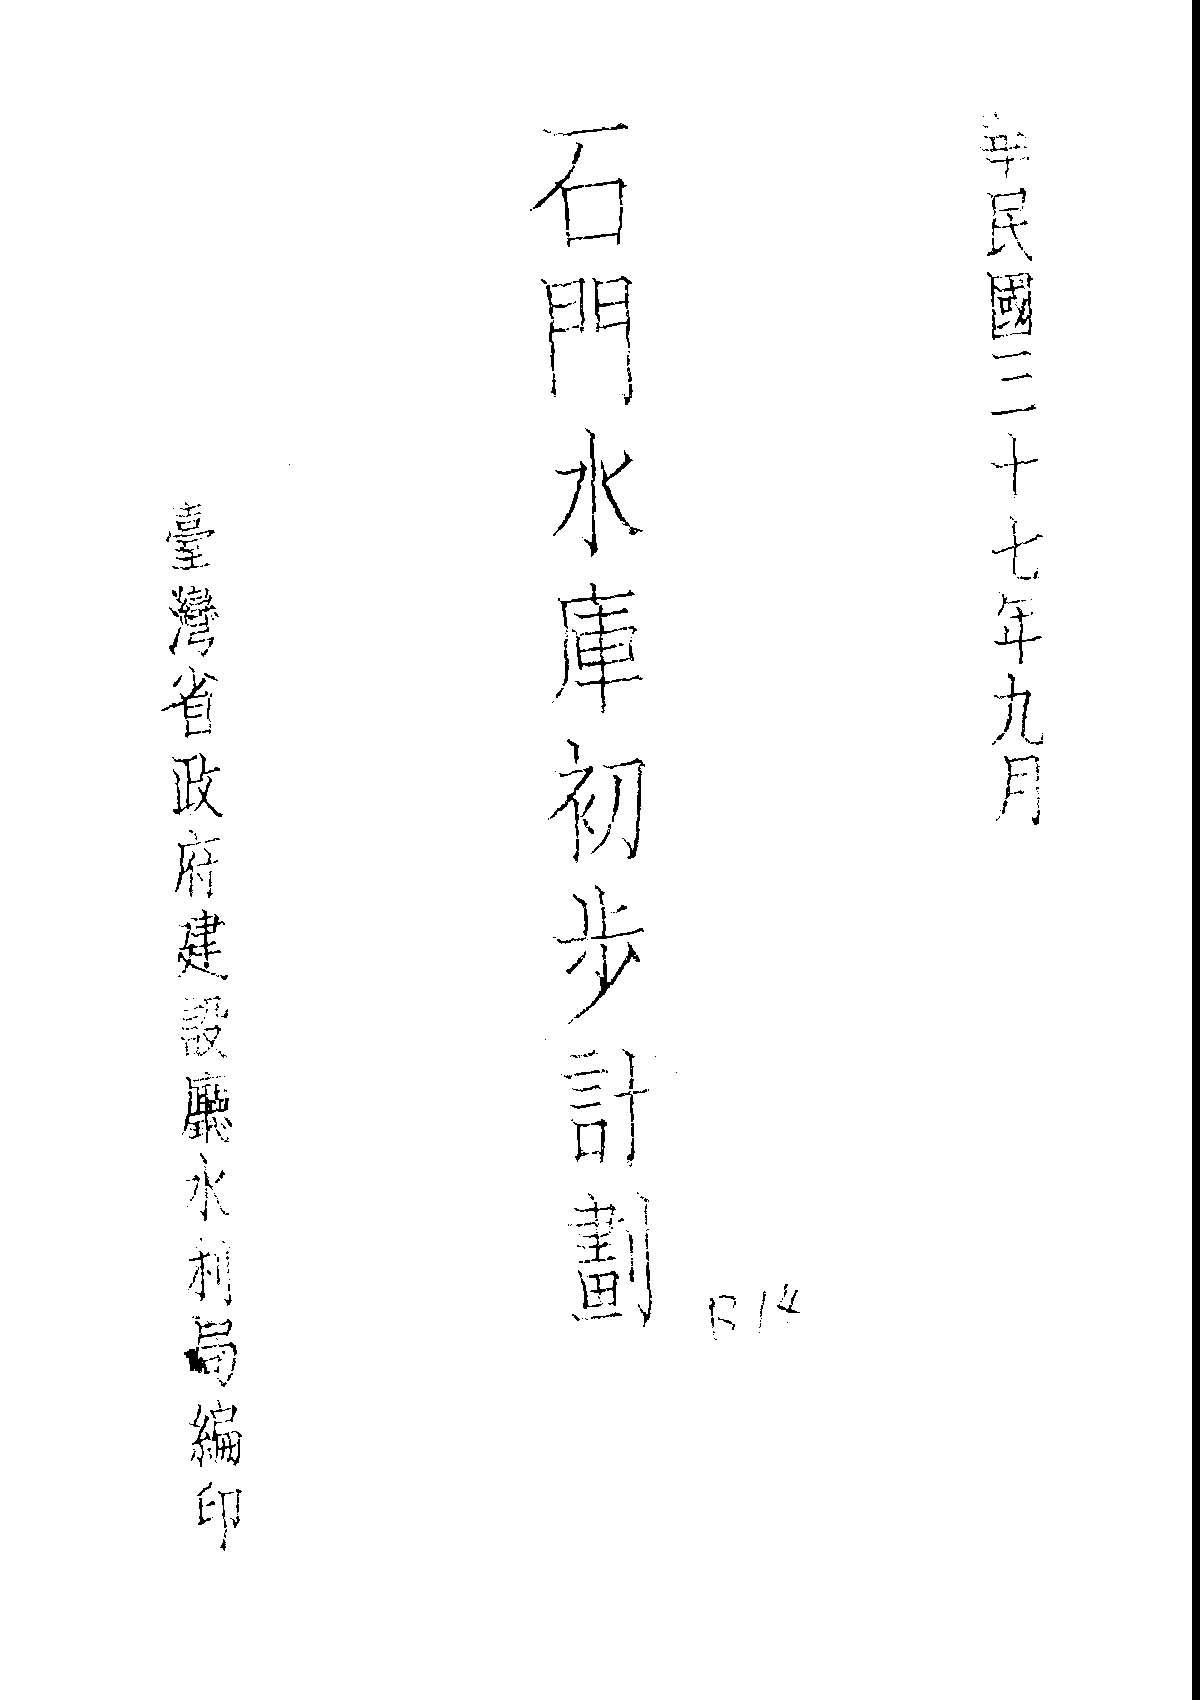 華民國三十七年九月
石門水庫初步計劃
臺灣省政府建設廳水利局編印